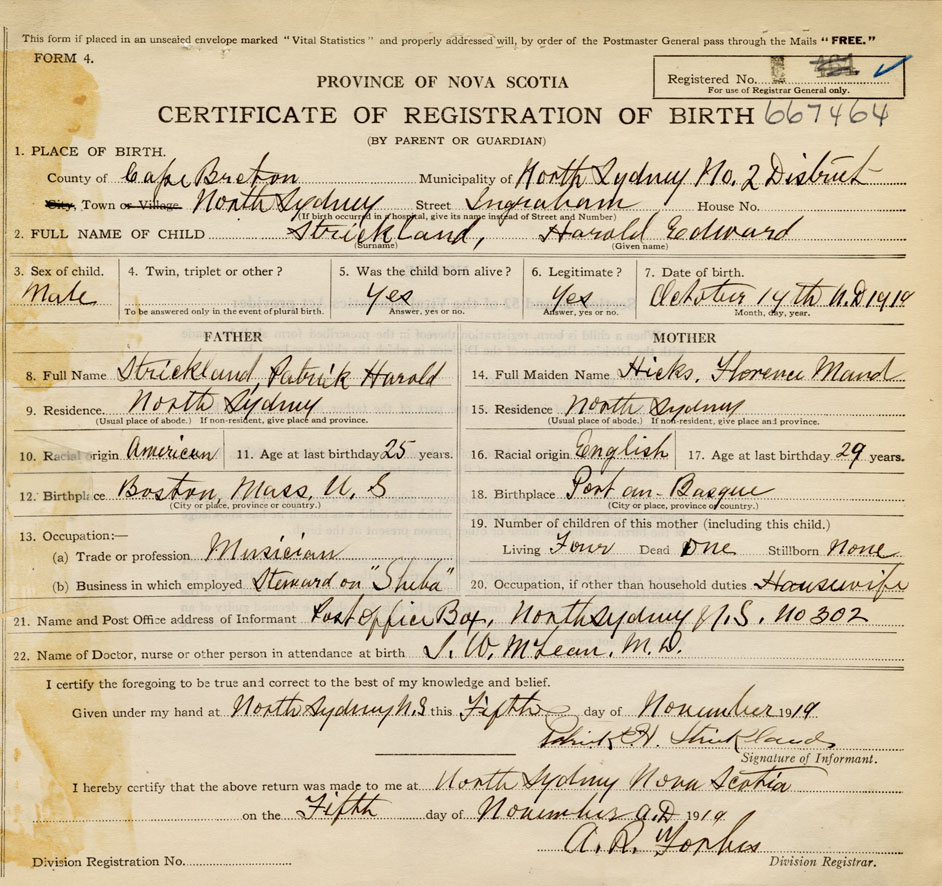 This form if placed in an unsealed envelope marked "Vital Statistics" and properly addressed will, by order of the Postmaster General pass through the Mails "FREE."
FORM 4.
Registered No.
For use of Registrar General only.
PROVINCE OF NOVA SCOTIA
CERTIFICATE OF REGISTRATION OF BIRTH 667464
(BY PARENT OR GUARDIAN)
1. PLACE OF BIRTH.
County of Cape Breton Municipality of North Sydney No. 2 District
City, Town or Village. North Sydney Street Ingraham House No.
(If birth occurred in a hospital, give its name instead of Street and Number)
2. FULL NAME OF CHILD Strickland, Harold Edward
(Surname) (Given name)
3. Sex of child. 4. Twin, triplet or other? 5. Was the child born alive? 6. Legitimate? 7. Date of birth.
Male Yes Yes October 19th A.D 1919
To be answered only in the event of plural birth. Answer, yes or no. Answer, yes or no. Month, day, year.
FATHER MOTHER
8. Full Name Strickland, Patrick Harold 14. Full Maiden Name Hicks, Florence Maud
9. Residence. North Sydney 15. Residence North Sydney
(Usual place of abode.) If non-resident, give place and province. (Usual place of abode.) If non-resident, give place and province.
10. Racial origin American 11. Age at last birthday 25 years. 16. Racial origin English 17. Age at last birthday 29 years.
12. Birthplace Boston, Mass, U. S 18. Birthplace Port au-Basque
(City or place, province or country.) (City or place, province or country.)
13. Occupation:— 19. Number of children of this mother (including this child.)
(a) Trade or profession Musician Living Four Dead One Stillborn None
(b) Business in which employed Steward on "Sheba" 20. Occupation, if other than household duties Housewife
21. Name and Post Office address of Informant Post Office Box, North Sydney N.S. No 302
22. Name of Doctor, nurse or other person in attendance at birth J. W. McLean, M.D.
I certify the foregoing to be true and correct to the best of my knowledge and belief.
Given under my hand at North Sydney N.S this Fifth day of November 1919
Patrick H. Strickland
Signature of Informant.
I hereby certify that the above return was made to me at North Sydney Nova Scotia
on the Fifth day of November A.D 1919
A. R. Forbes
Division Registration No. Division Registrar.